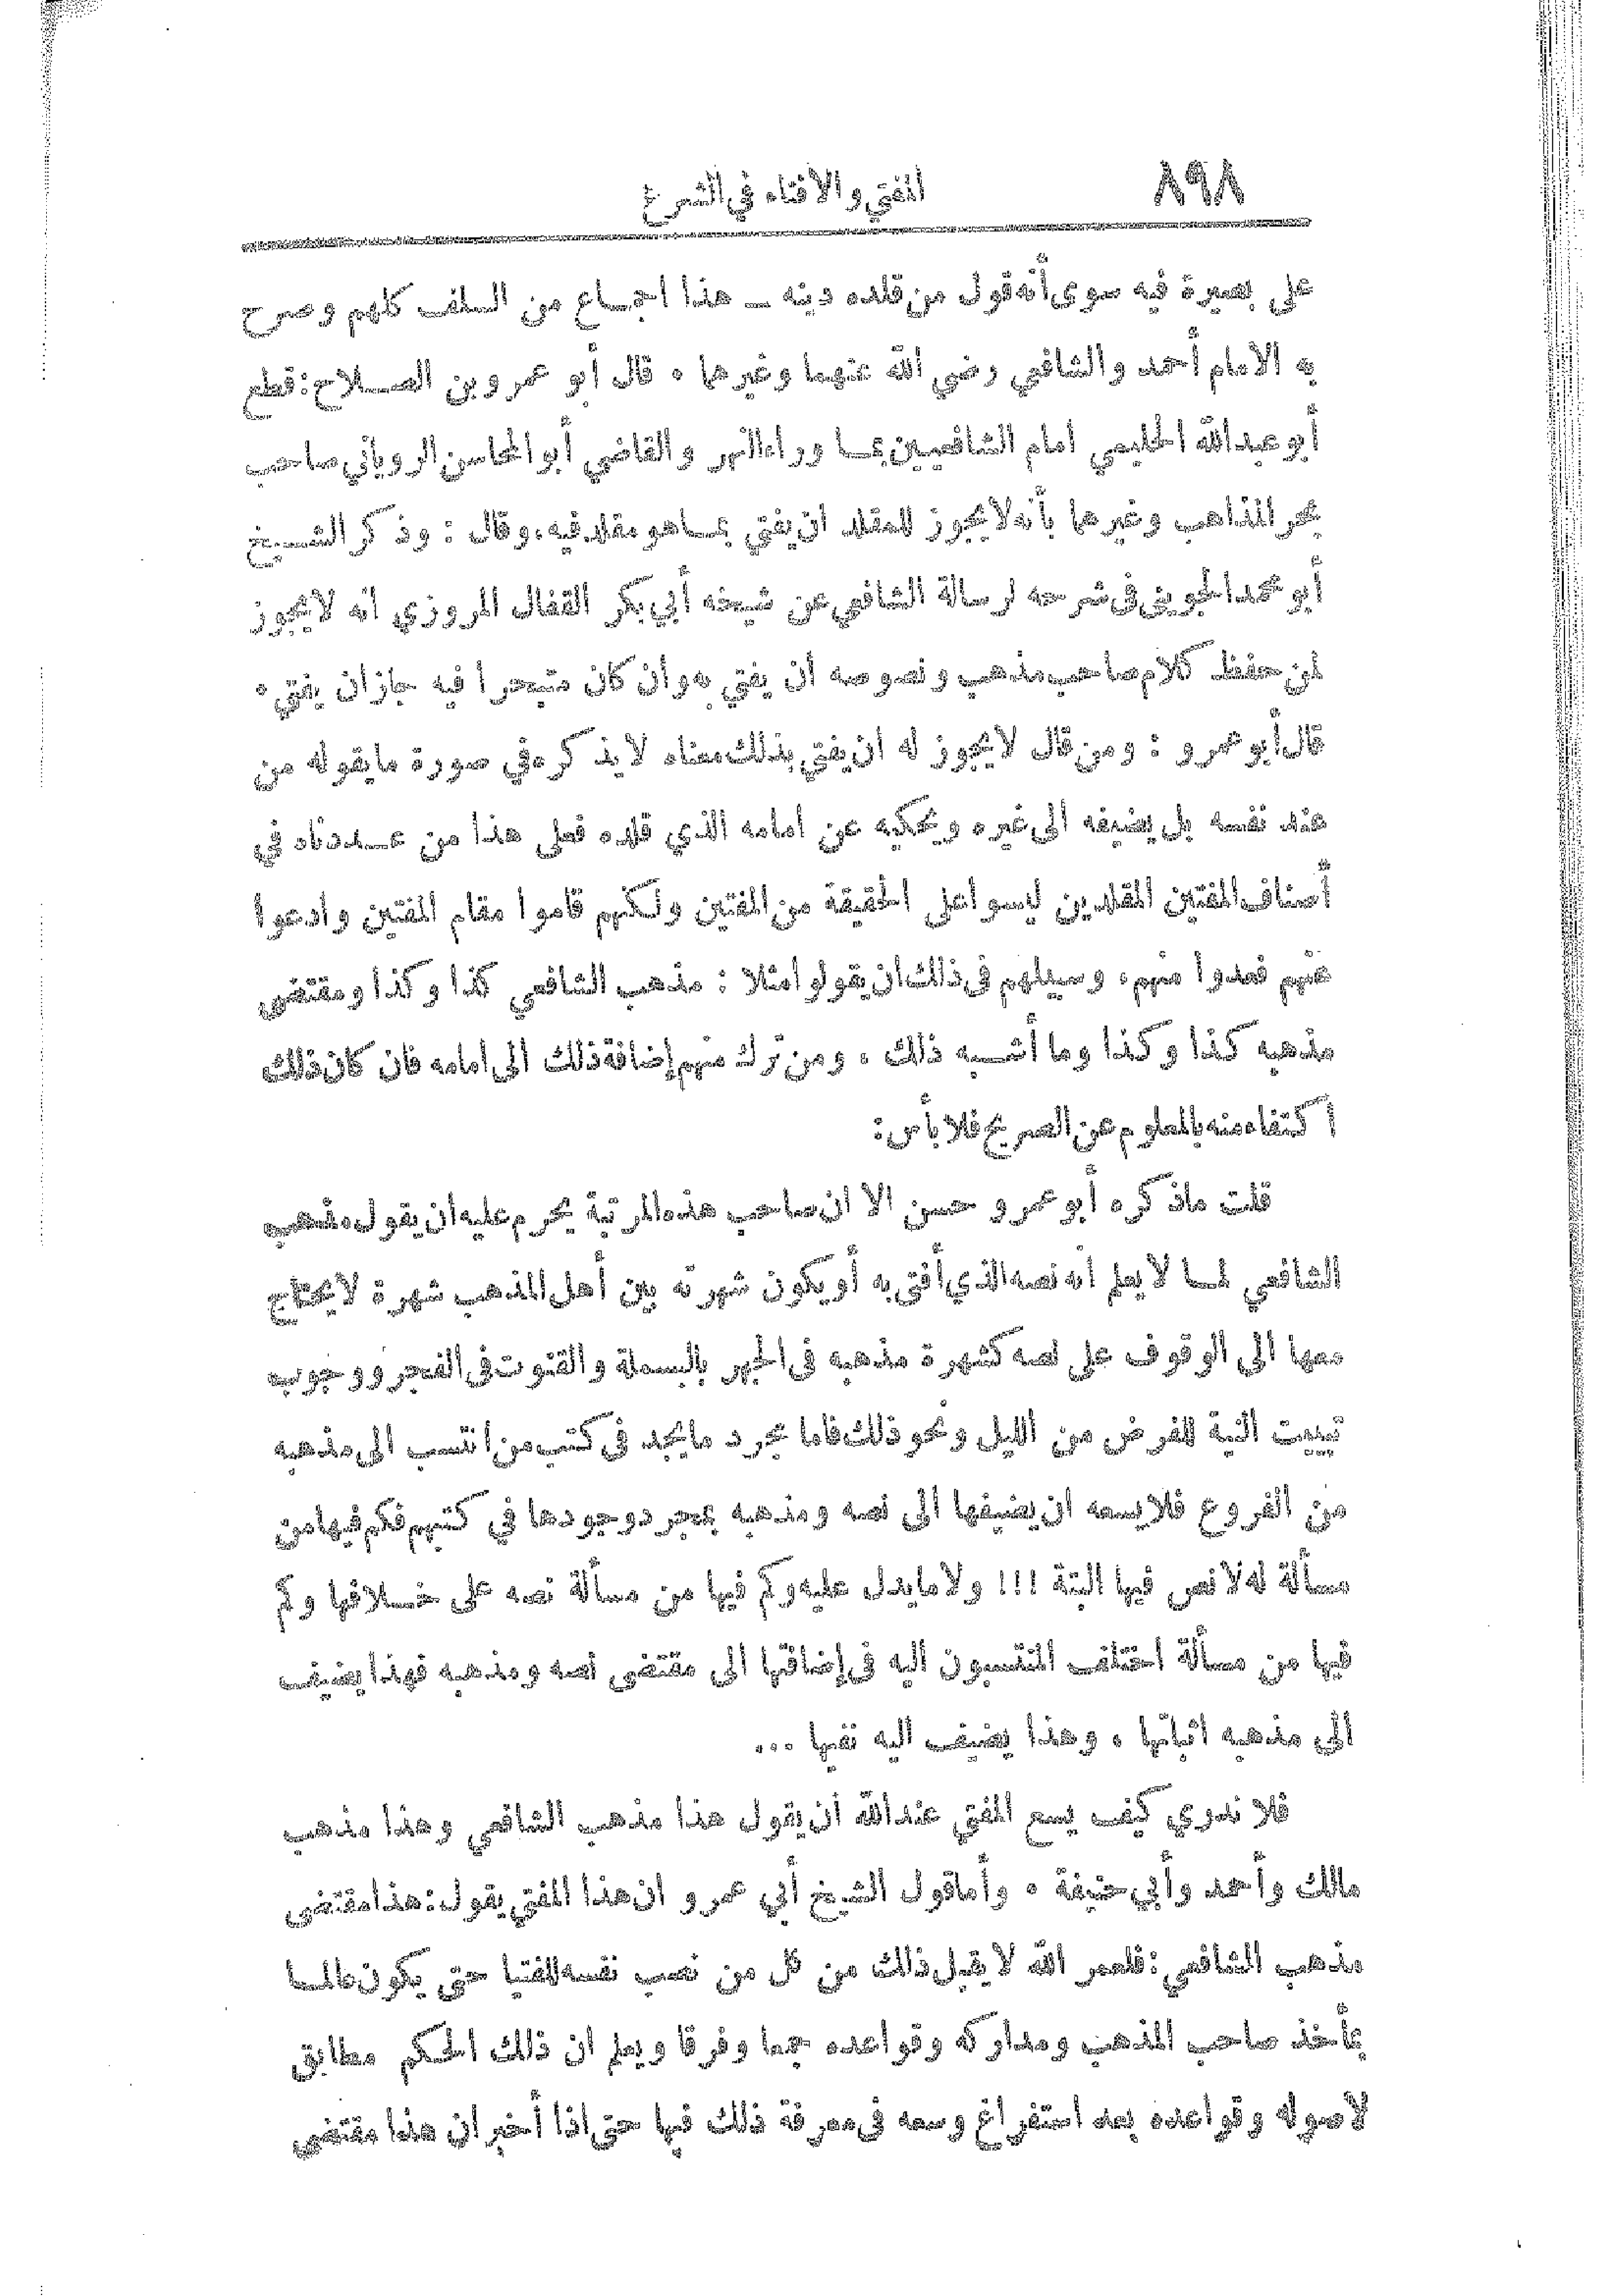 ٨٩٨
المفتي والافتاء في الشرع
على بصيرة فيه سوى أنه قول من قلده دينه ــ هذا اجماع من السلف كلهم وصرح
به الامام أحمد والشافعي رضي الله عنهما وغيرهما ، قال أبو عمرو بن الصلاح : قطع
أبو عبد الله الحليمي امام الشافعيين بما وراء النهر والقاضي أبو المحاسن الروياني صاحب
بحر المذاهب وغيرهما بأنه لا يجوز للمقلد ان يفتي بما هو مقلد فيه ، وقال : وذكر الشيخ
أبو محمد الجويني في شرحه لرسالة الشافعي عن شيخه أبي بكر القفال المروزي انه لا يجوز
لمن حفظ كلام صاحب مذهب ونصوصه أن يفتي به وان كان متبحرا فيه جاز ان يفتي ،
قال أبو عمرو : ومن قال لا يجوز له ان يفتي بذلك معناه لا يذكره في صورة ما يقوله من
عند نفسه بل يضيفه الى غيره ويحكيه عن امامه الذي قلده فعلى هذا من عددناه في
أصناف المفتين المقلدين ليسوا على الحقيقة من المفتين ولكنهم قاموا مقام المفتين وادعوا
عنهم فعدوا منهم ، وسبيلهم في ذلك ان يقولوا مثلا : مذهب الشافعي كذا وكذا ومقتضى
مذهبه كذا وكذا وما أشبه ذلك ، ومن ترك منهم إضافة ذلك الى امامه فان كان ذلك
اكتفاء منه بالمعلوم عن الصريح فلا بأس :
قلت ما ذكره أبو عمرو حسن الا ان صاحب هذه المرتبة يحرم عليه ان يقول مذهب
الشافعي لما لا يعلم أنه نصه الذي أفتى به أو يكون شهرته بين أهل المذهب شهرة لا يحتاج
معها الى الوقوف على نصه كشهرة مذهبه في الجهر بالبسملة والقنوت في الفجر ووجوب
تبييت النية للفرض من الليل ونحو ذلك فاما مجرد ما يجد في كتب من انتسب الى مذهبه
من الفروع فلا يسعه ان يضيفها الى نصه ومذهبه بمجرد وجودها في كتبهم فكم فيها من
مسألة له لا نص فيها البتة !!! ولا ما يدل عليه وكم فيها من مسألة نصه على خلافها وكم
فيها من مسألة اختلف المنتسبون اليه في إضافتها الى مقتضى نصه ومذهبه فهذا يضيف
الى مذهبه اثباتها ، وهذا يضيف اليه نفيها ...
فلا ندري كيف يسع المفتي عند الله أن يقول هذا مذهب الشافعي وهذا مذهب
مالك وأحمد وأبي حنيفة ، وأما قول الشيخ أبي عمرو ان هذا المفتي يقول : هذا مقتضى
مذهب الشافعي : فلعمر الله لا يقبل ذلك من كل من نصب نفسه للفتيا حتى يكون عالما
بمأخذ صاحب المذهب ومداركه وقواعده جمعا وفرقا ويعلم ان ذلك الحكم مطابق
لاصوله وقواعده بعد استفراغ وسعه في معرفة ذلك فيها حتى اذا أخبر ان هذا مقتضى